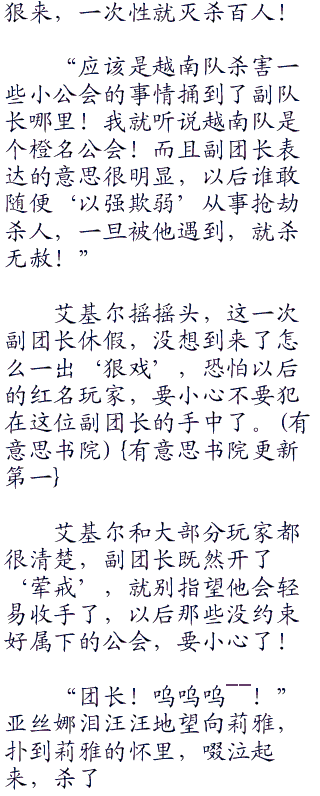 狠来，一次性就灭杀百人！
“应该是越南队杀害一
些小公会的事情捅到了副队
长哪里！我就听说越南队是
个橙名公会！而且副团长表
达的意思很明显，以后谁敢
随便‘以强欺弱’从事抢劫
杀人，一旦被他遇到，就杀
无赦！”
艾基尔摇摇头，这一次
副团长休假，没想到来了怎
么一出‘狠戏’，恐怕以后
的红名玩家，要小心不要犯
在这位副团长的手中了。（有
意思书院）{有意思书院更新
第一}
艾基尔和大部分玩家都
很清楚，副团长既然开了
‘荤戒’，就别指望他会轻
易收手了，以后那些没约束
好属下的公会，要小心了！
“团长！呜呜呜――！”
亚丝娜泪汪汪地望向莉雅，
扑到莉雅的怀里，啜泣起
来，杀了